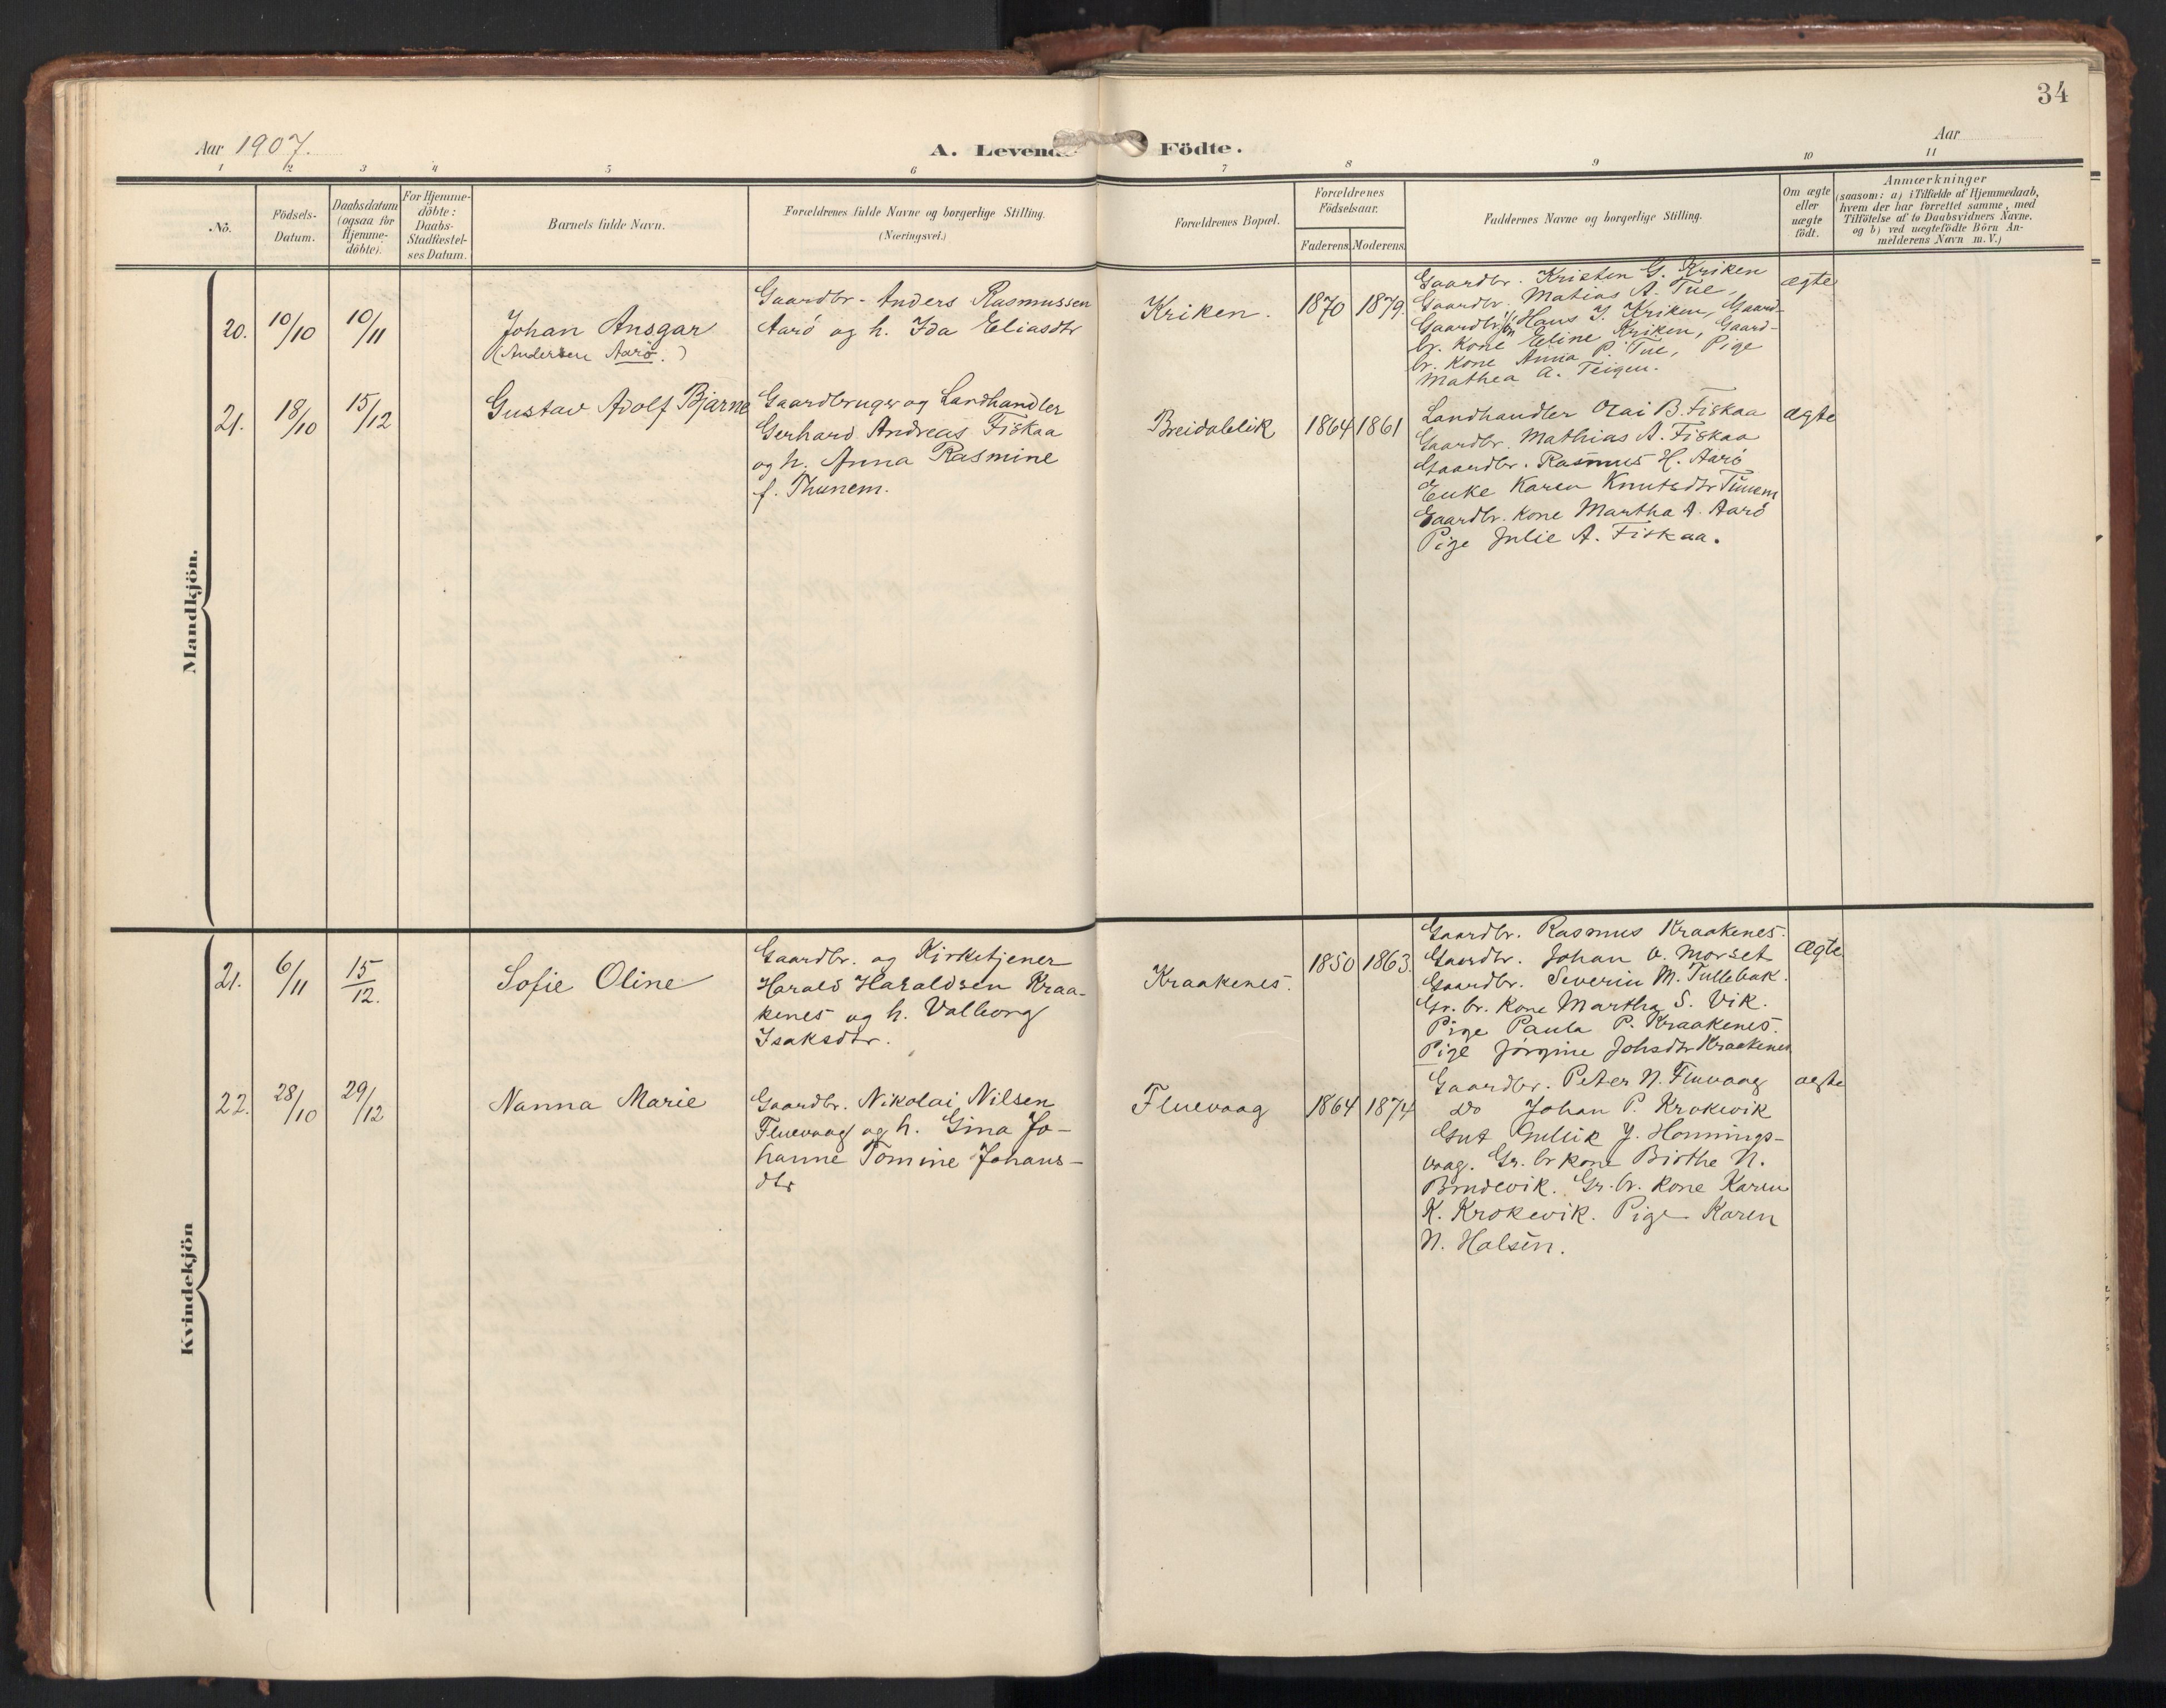 34
Aar 1907.
A. Levende Födte.
Aar
1 2 3 4 5 6 7 8 9 10 11
No.
Födsels-Datum.
Daabsdatum (ogsaa for Hjemme-döbte).
For Hjemme-döbte: Daabs-Stadfæstel-ses Datum.
Barnets fulde Navn.
Forældrenes fulde Navne og borgerlige Stilling.
(Næringsvei.)
Forældrenes Bopæl.
Forældrenes Födselsaar.
Faderens. Moderens.
Faddernes Navne og borgerlige Stilling.
Om ægte eller uægte födt.
Anmærkninger
(saasom: a) i Tilfælde af Hjemmedaab,
hvem der har forrettet samme, med
Tilföielse af to Daabsvidners Navne,
og b) ved uægtefödte Börn An-
melderens Navn m. V.)
Mandkjön.
20. 10/10 10/11
Johan Ansgar
(Andersen Aarö.)
Gaardbr. Anders Rasmussen
Aarö og h. Ida Eliasdtr
Kriken. 1870 1879.
Gaardbr. Kristen G. Kriken
Gaardbr. Matias A. Tue,
Gaardbr. Hans J. Kriken, Gaard-
br. Kone Eline Kriken, Gaard-
br. Kone Anna P. Tue, Pige
Mathea A. Teigen.
ægte
21. 18/10 15/12
Gustav Adolf Bjarne
Gaardbruger og Landhandler
Gerhard Andreas Fiskaa
og h. Anna Rasmine
f. Thunem.
Breidablik 1864 1861
Landhandler Olai B. Fiskaa
Gaardbr. Mathias A. Fiskaa
Gaardbr. Rasmus H. Aarö
Enke Karen Knutsdtr Tunem
Gaardbr. Kone Martha A. Aarö
Pige Julie A. Fiskaa.
ægte
Kvindekjön
21. 6/11 15/12.
Sofie Oline
Gaardbr. og Kirketjener
Harald Haraldsen Kraa-
kenes og h. Valborg
Isaksdtr.
Kraakenes. 1850 1863.
Gaardbr. Rasmus Kraakenes.
Gaardbr. Johan O. Morset
Gaardbr. Severin M. Tullebak.
Gr. br. Kone Martha S. Vik.
Pige Paula P. Kraakenes.
Pige Jörgine Johsdtr Kraakenes
Ægte
22. 28/10 29/12
Nanna Marie
Gaardbr. Nikolai Nilsen
Fluevaag og h. Gina Jo-
hanne Tomine Johans-
dtr
Fluevaag 1864 1874
Gaardbr. Peter N. Fluvaag
do Johan P. Krokevik
Gut Gullik J. Honnings-
vaag. Gr. br kone Birthe N.
Brudevik. Gr. br. Kone Karen
K. Krokevik. Pige Karen
N. Halsen.
ægte